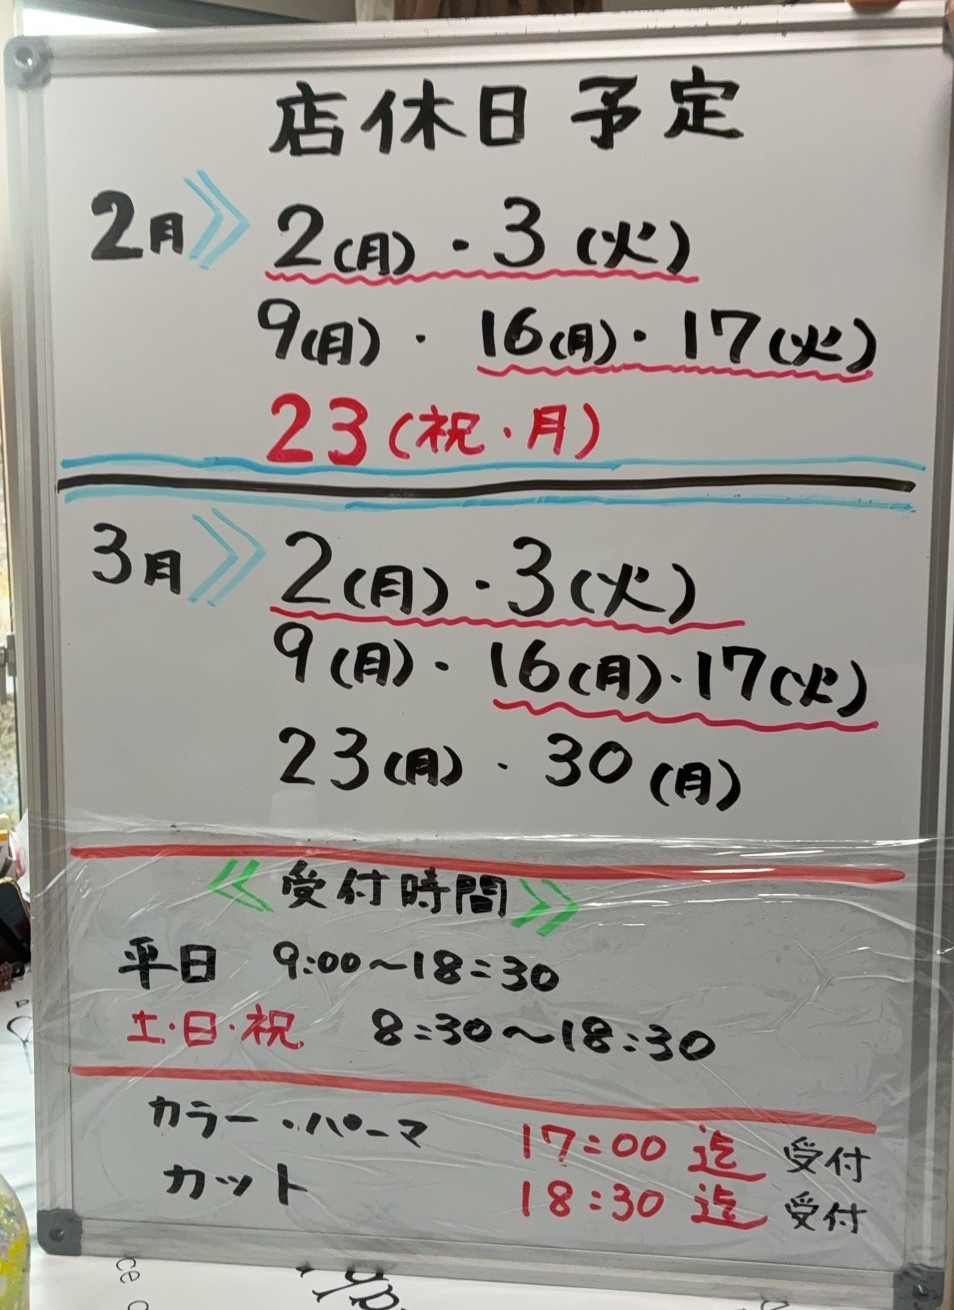 店休日 予定
2月》 2(月)・3(火)
9(月)・16(月)・17(火)
23(祝・月)
3月》 2(月)・3(火)
9(月)・16(月)・17(火)
23(月)・30(月)
《受付時間》
平日 9:00〜18:30
土・日・祝 8:30〜18:30
カラー・パーマ 17:00 迄 受付
カット 18:30 迄 受付
ce